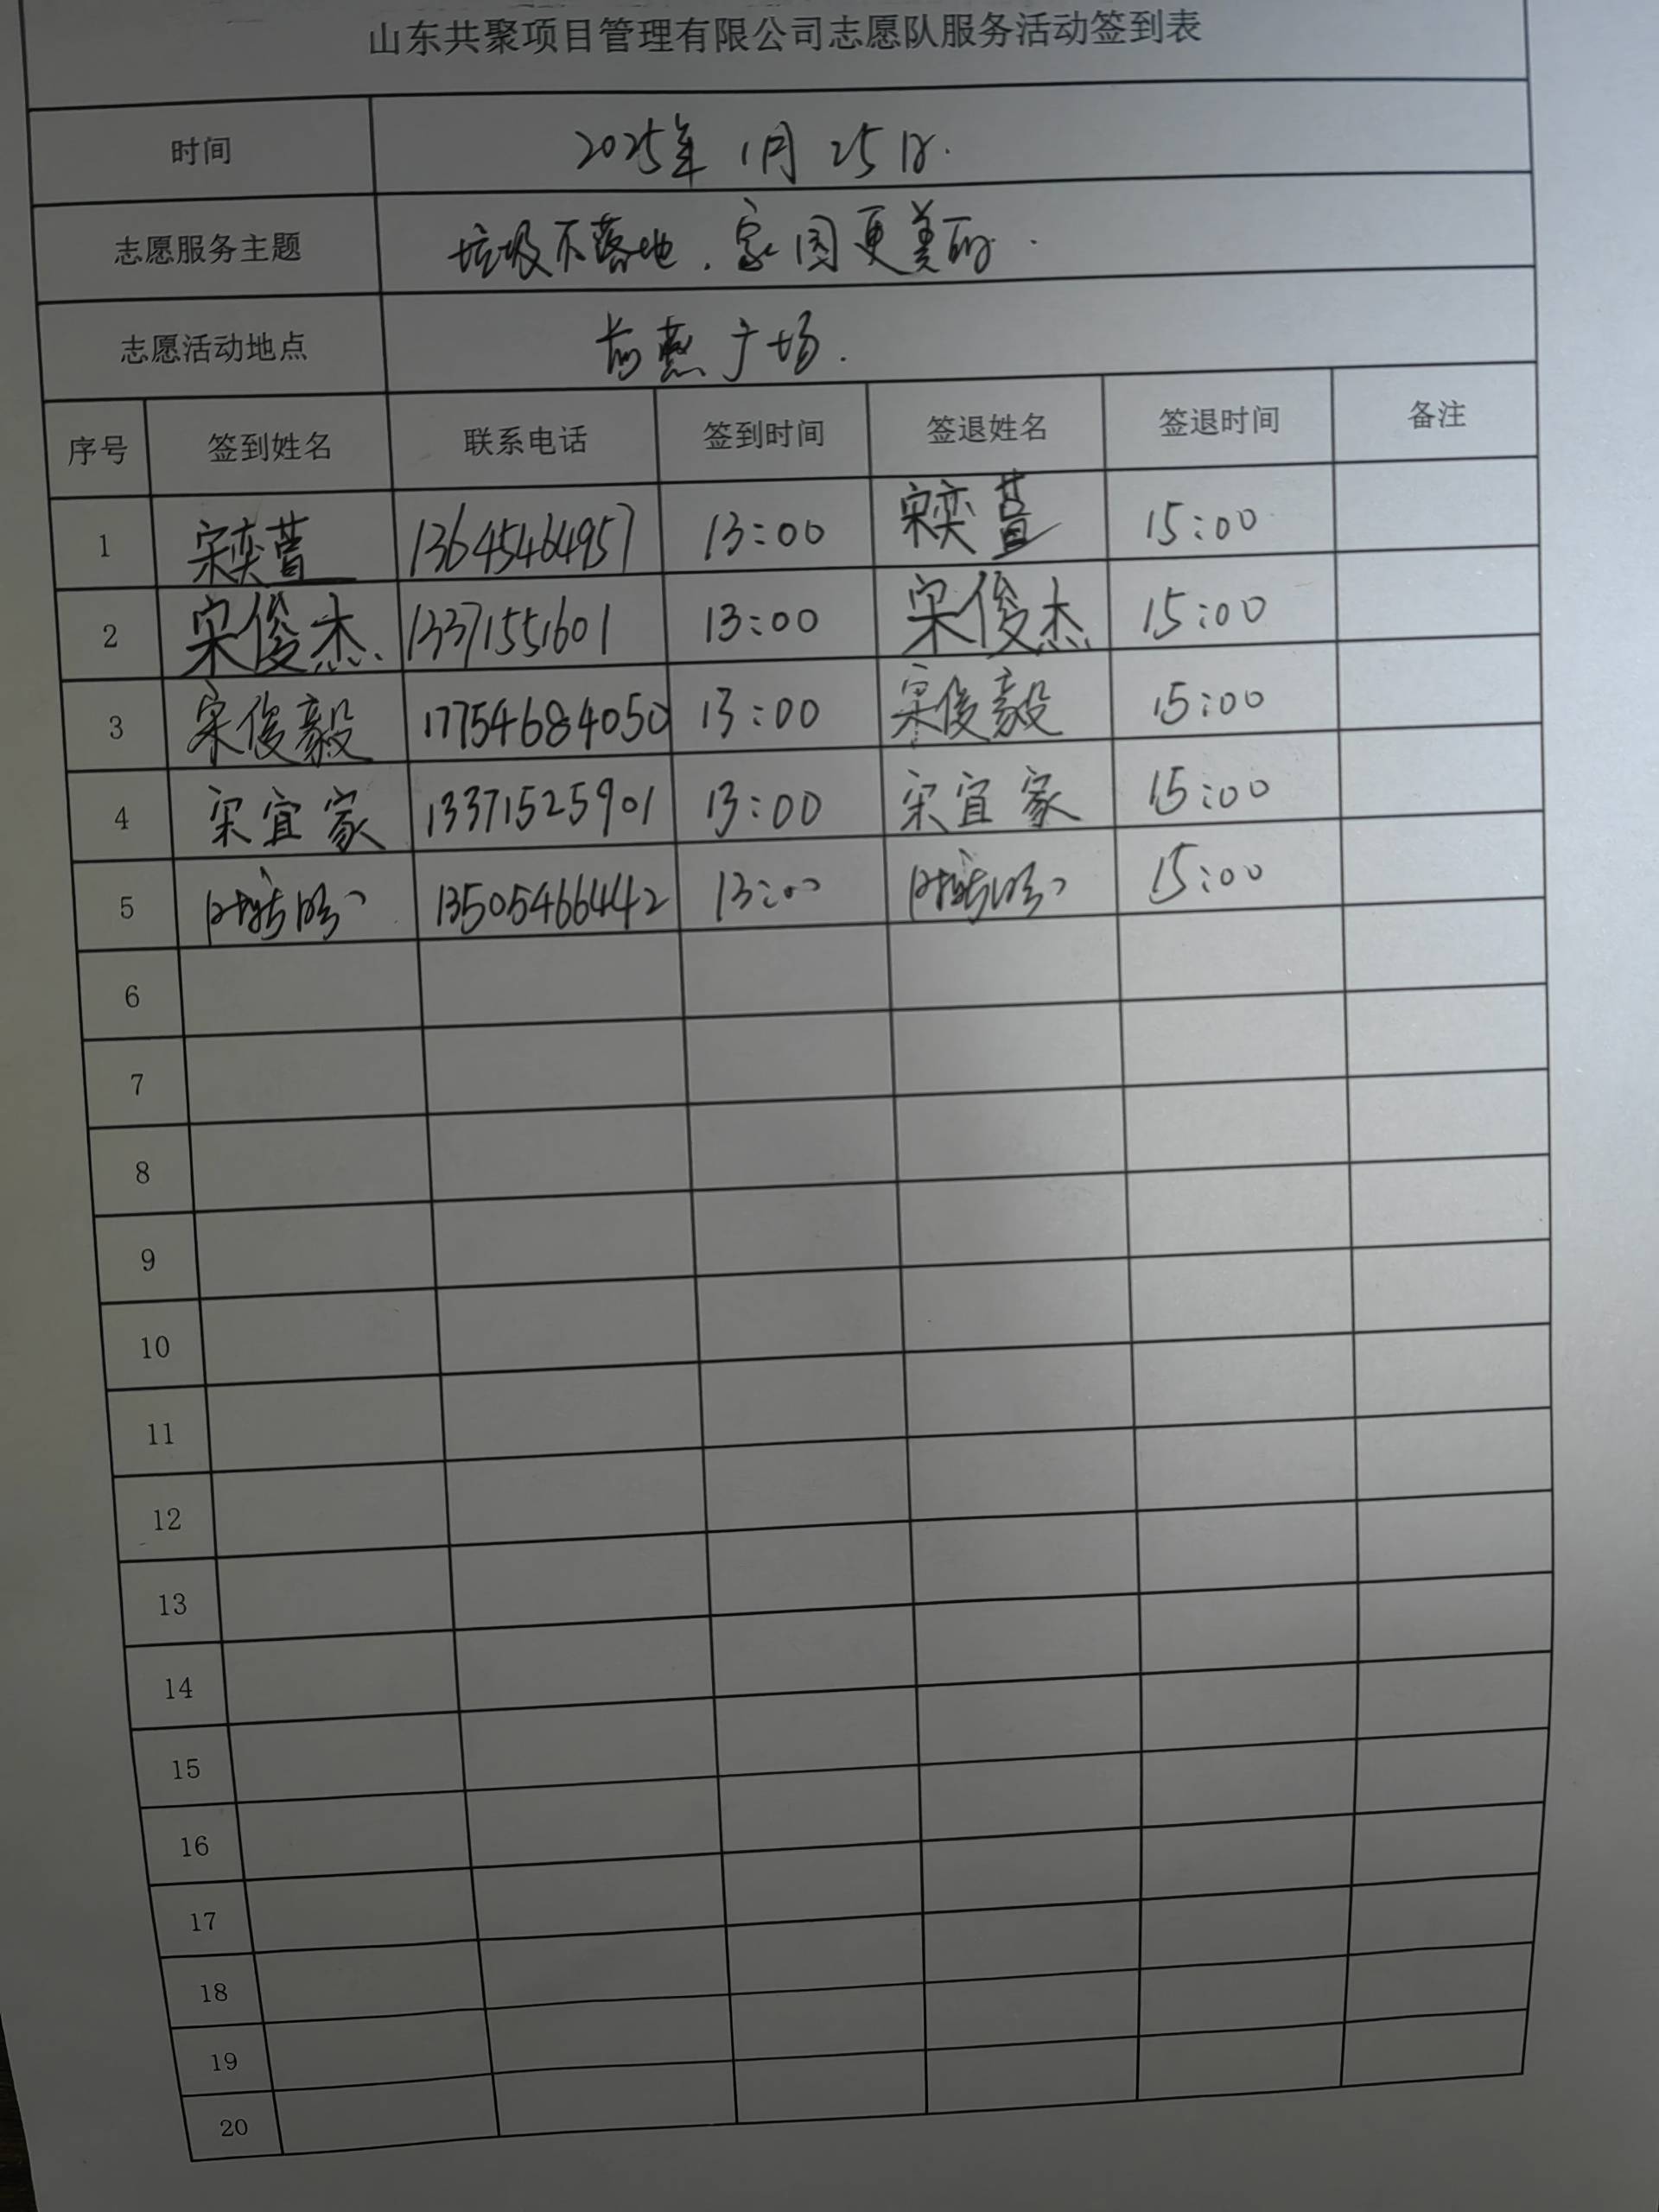 山东共聚项目管理有限公司志愿队服务活动签到表
时间 2025年1月25日.
志愿服务主题 垃圾不落地.家园更美丽.
志愿活动地点 广场.
序号 签到姓名 联系电话 签到时间 签退姓名 签退时间 备注
1 宋奕萱 13645464957 13:00 宋奕萱 15:00
2 宋俊杰. 13371551601 13:00 宋俊杰 15:00
3 宋俊毅 17754684050 13:00 宋俊毅 15:00
4 宋宜家 13371525901 13:00 宋宜家 15:00
5 13505466442 13:00 15:00
6
7
8
9
10
11
12
13
14
15
16
17
18
19
20